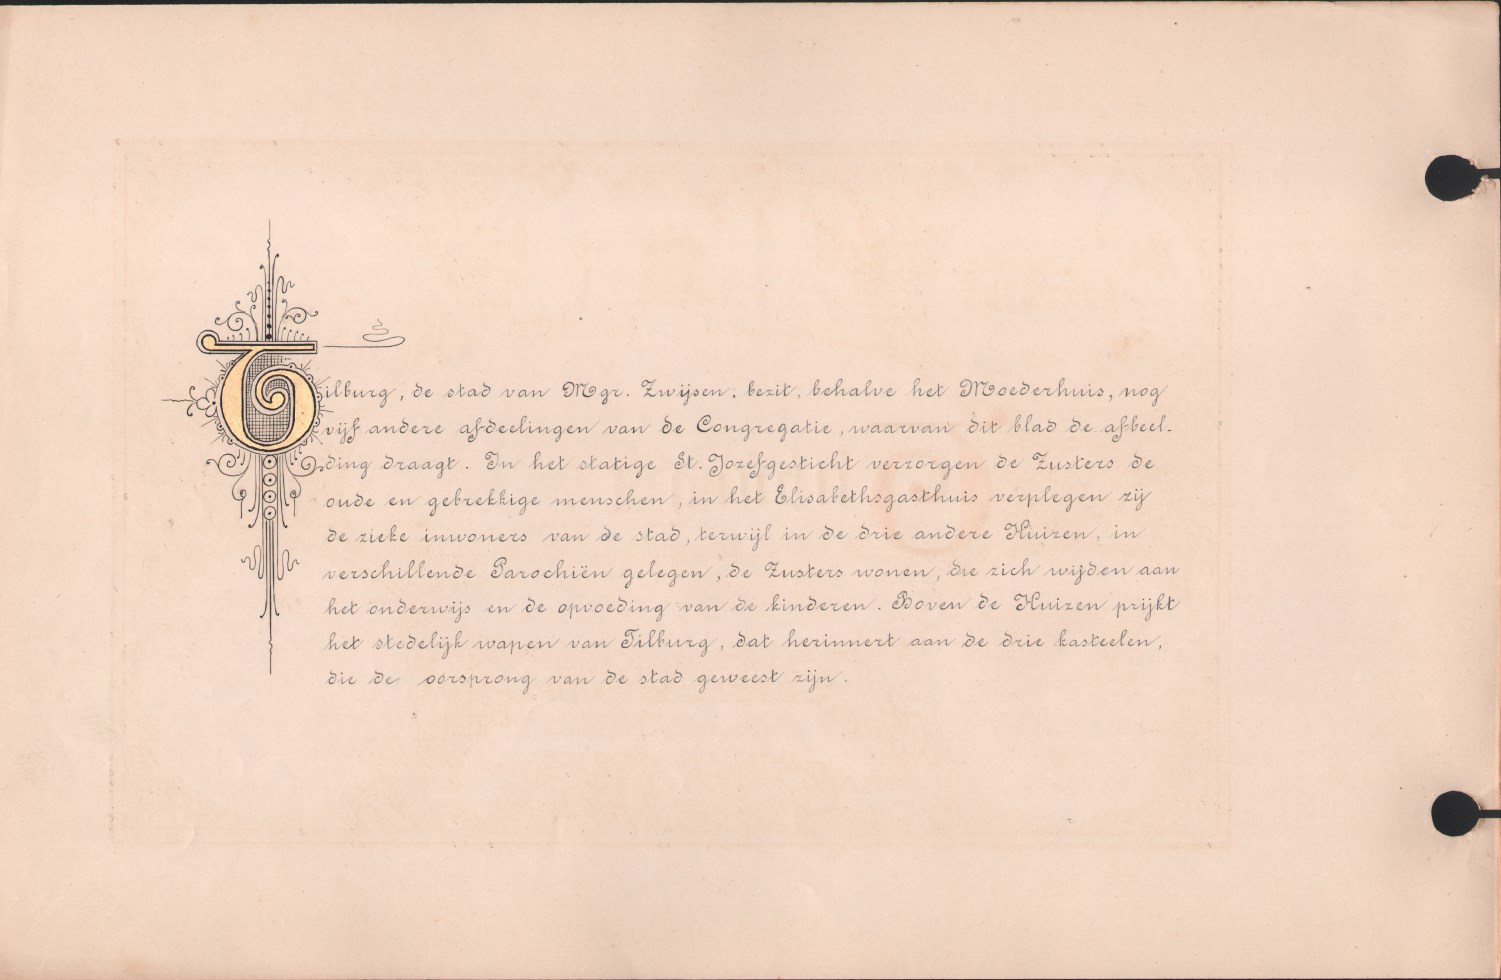 Tilburg, de stad van Mgr. Zwijsen, bezit, behalve het Moederhuis, nog
vijf andere afdeelingen van de Congregatie, waarvan dit blad de afbeel-
ding draagt. In het statige St. Jozefgesticht verzorgen de Zusters de
oude en gebrekkige menschen, in het Elisabethsgasthuis verplegen zij
de zieke inwoners van de stad, terwijl in de drie andere Huizen, in
verschillende Parochiën gelegen, de Zusters wonen, die zich wijden aan
het onderwijs en de opvoeding van de kinderen. Boven de Huizen prijkt
het stedelijk wapen van Tilburg, dat herinnert aan de drie kasteelen,
die de oorsprong van de stad geweest zijn.